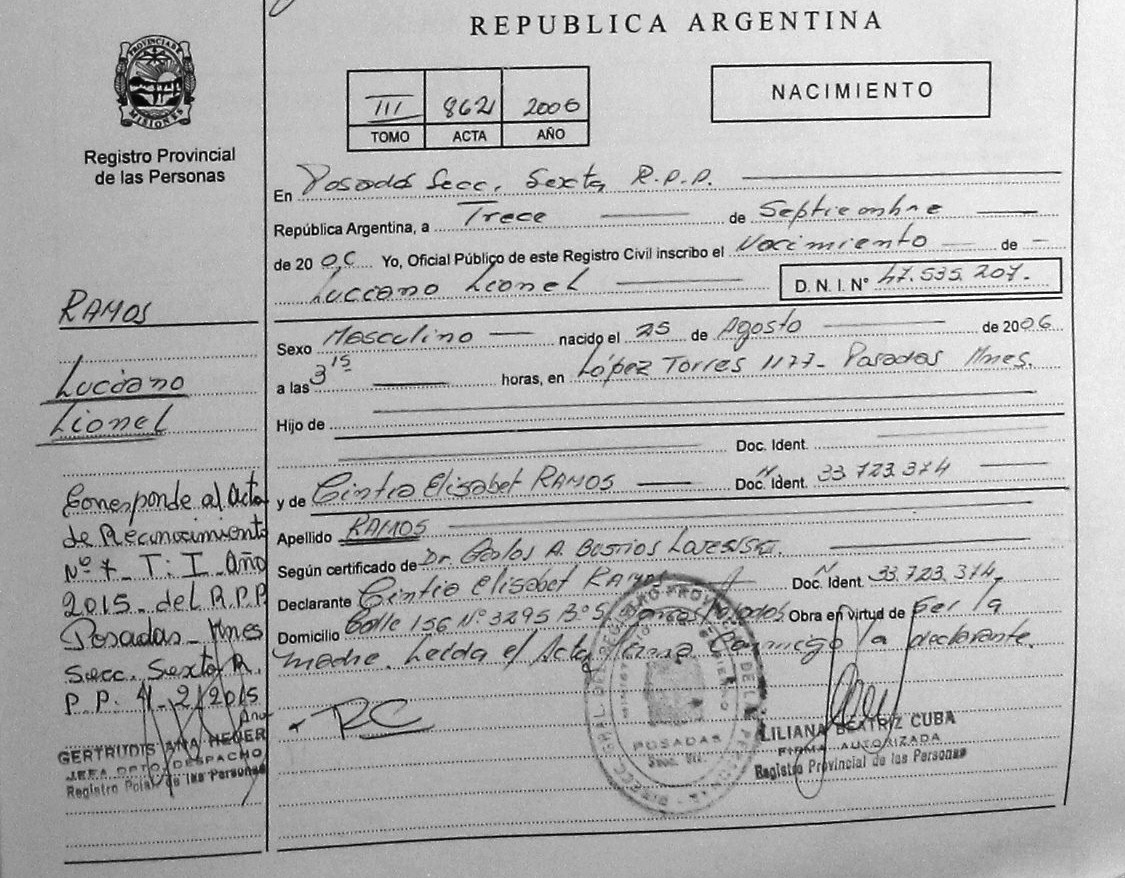 REPUBLICA ARGENTINA
PROVINCIA DE
MISIONES
Registro Provincial
de las Personas
III 8621 2006
TOMO ACTA AÑO
NACIMIENTO
En Posadas Secc. Sexta R.P.P.
República Argentina, a Trece de Septiembre
de 20 06 Yo, Oficial Público de este Registro Civil inscribo el Nacimiento de
Luciano Lionel D. N. I. N° 47.535.207.
Sexo Masculino nacido el 25 de Agosto de 2006
a las 3 15 horas, en López Torres 1177- Posadas Mnes.
Hijo de
Doc. Ident.
y de Cintia Elisabet RAMOS Doc. Ident. 33.723.374
Apellido RAMOS
Según certificado de Dr. Carlos A. Bustios
Declarante Cintia Elisabet Ramos Doc. Ident. 33.723.374,
Domicilio Calle 156 N° 3295 B° Posadas Obra en virtud de Ser la
madre. Leída el Acta firma conmigo la declarante.
RC
RAMOS
Luciano
Lionel
Corresponde al Acta
de Reconocimiento
Nº 7_ T: I_ Año
2015_ del R.P.P
Posadas_ Mnes
Secc. Sexta R.
P.P. 4_2/2015
GERTRUDIS ANA
JEFA DPTO. DESPACHO
Registro Pcial. de las Personas
POSADAS
LILIANA BEATRIZ CUBA
FIRMA AUTORIZADA
Registro Provincial de las Personas